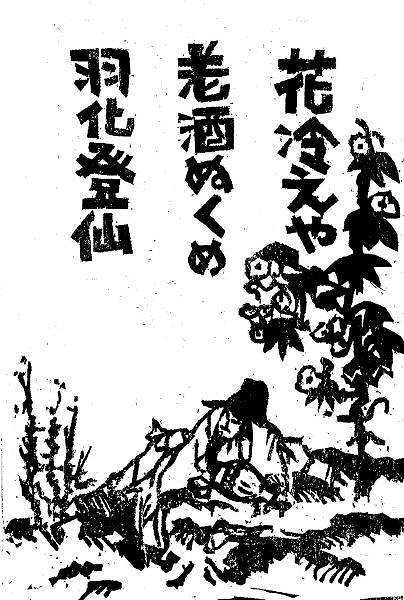 花冷えや
老酒ぬくめ
羽化登仙